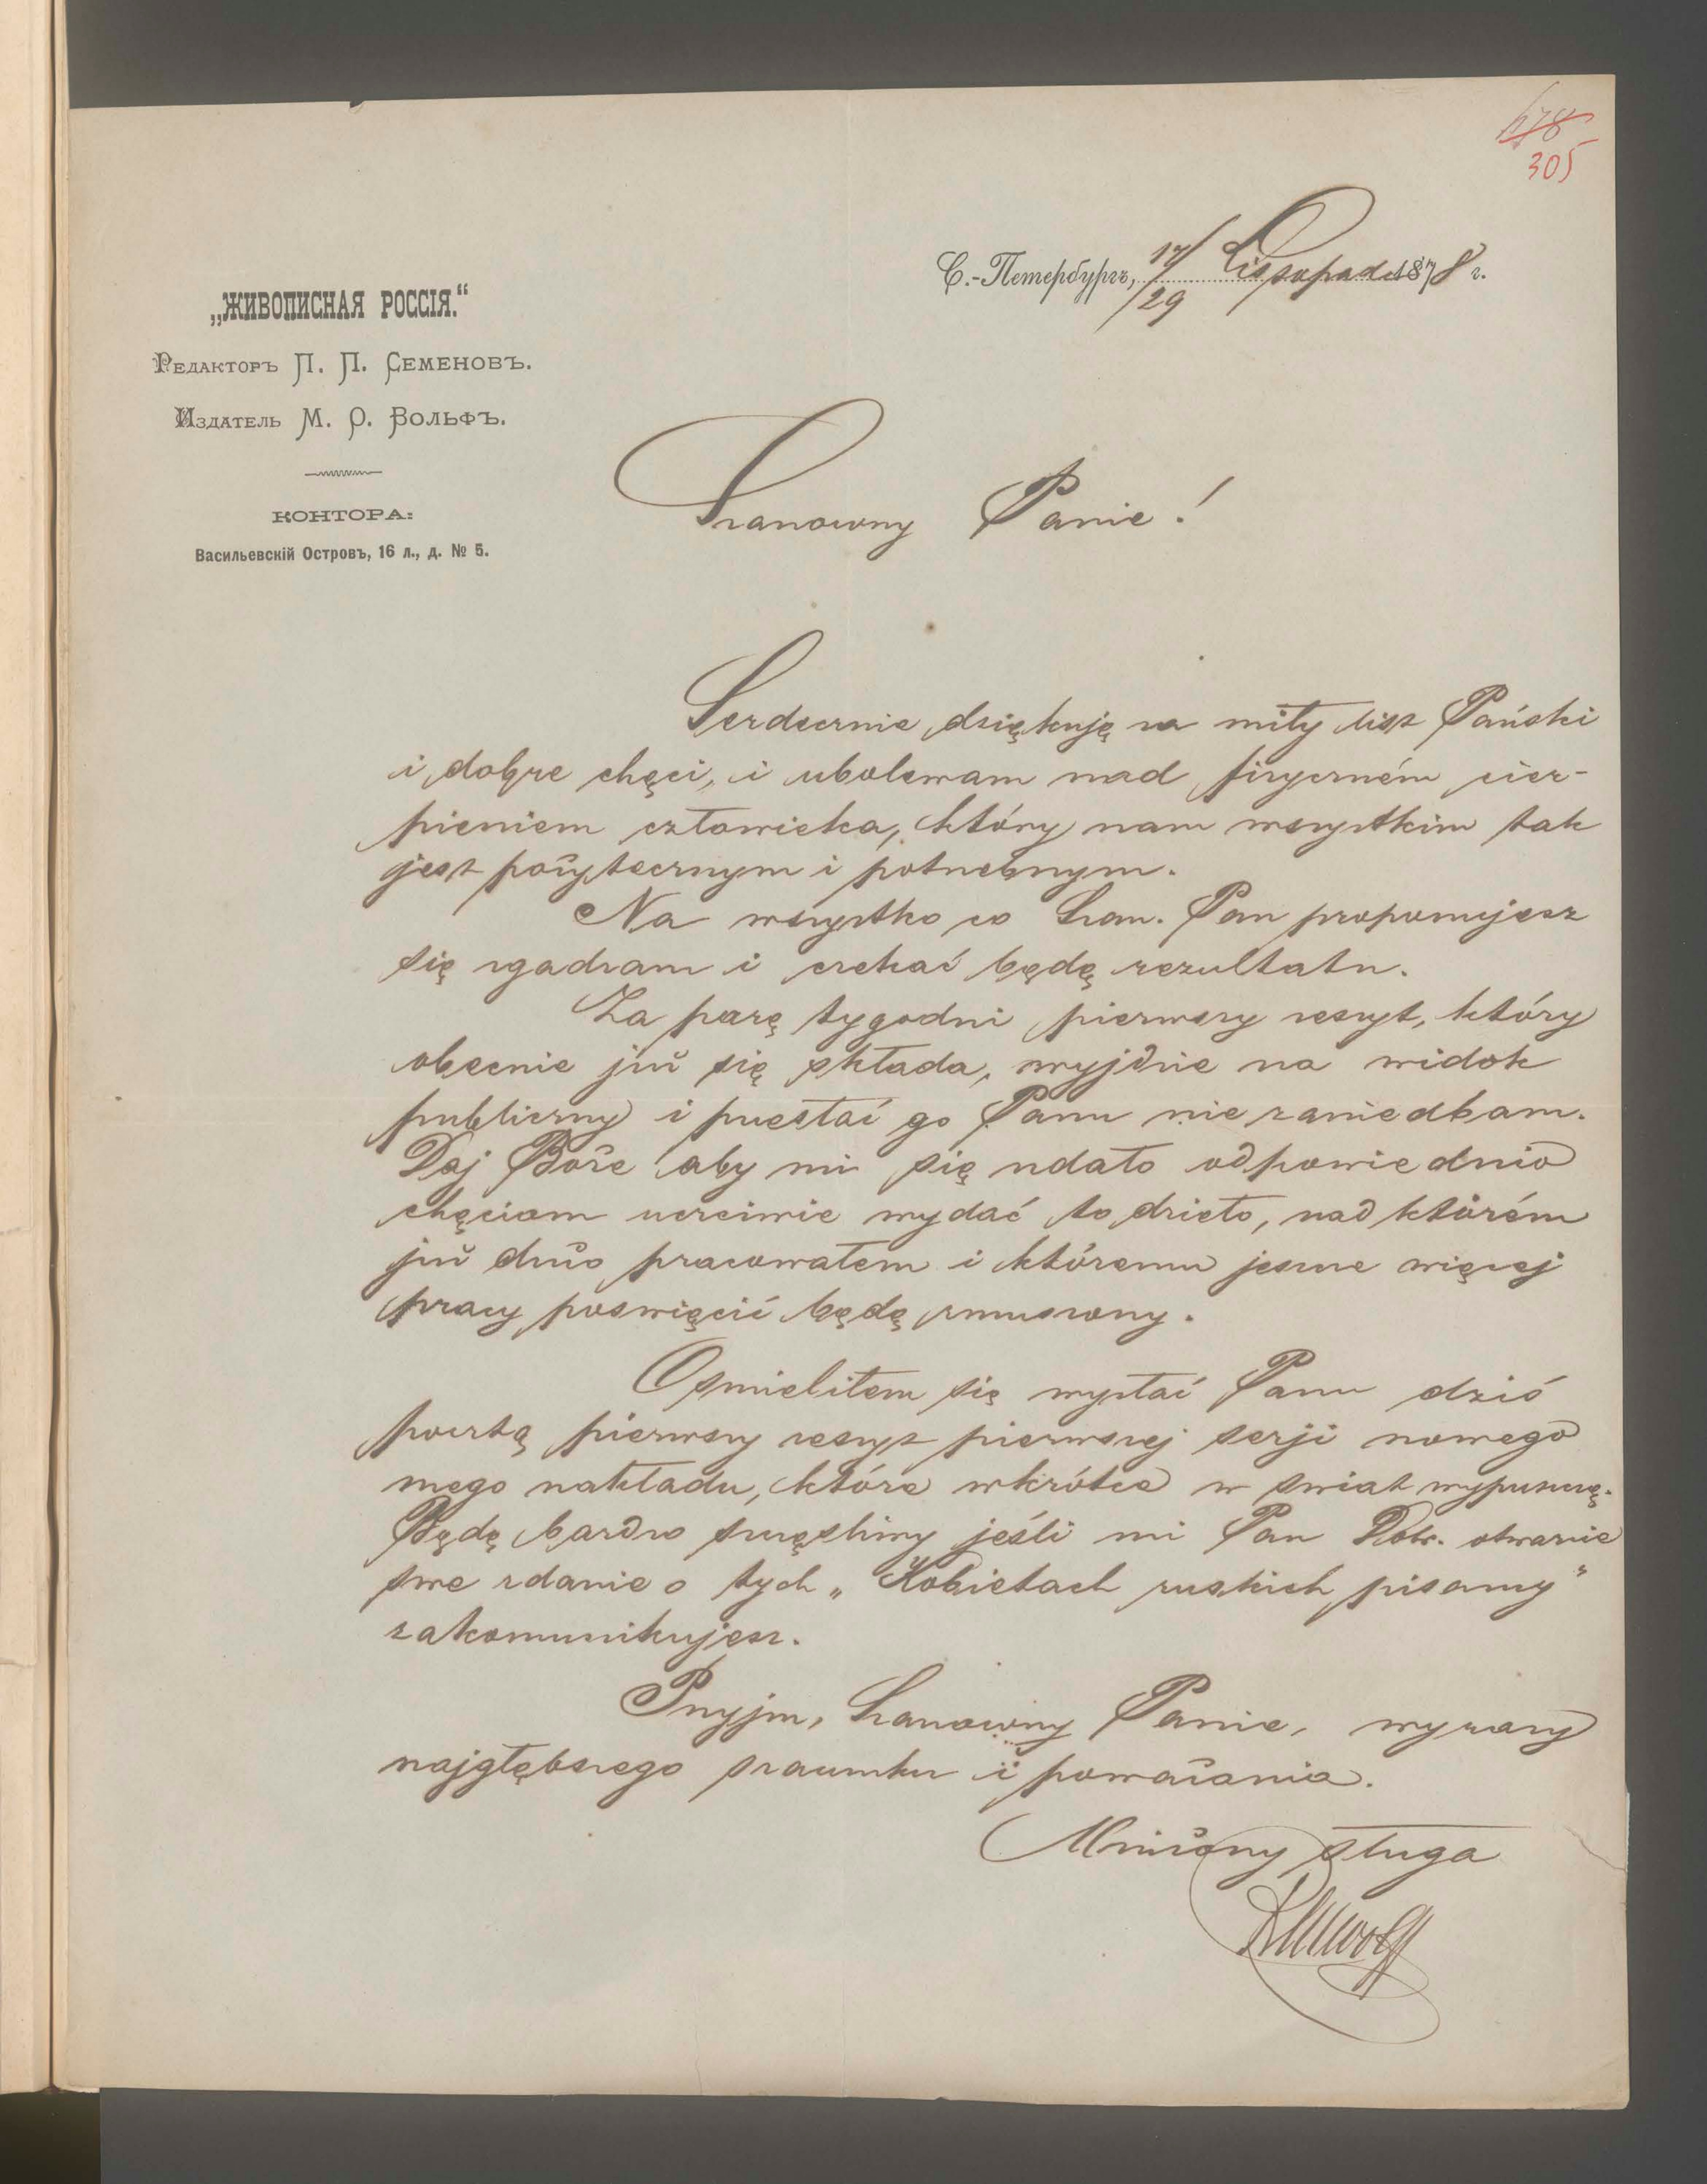 678
305
С.-Петербургъ, 17/29 Listopada 1878 г.
„ЖИВОПИСНАЯ РОССІЯ.“
Редакторъ П. П. Семеновъ.
Издатель М. О. Вольфъ.
КОНТОРА:
Васильевскій Островъ, 16 л., д. № 5.
Szanowny Panie!
Serdecznie dziękuję za miły list Pański
i dobre chęci, i ubolewam nad fizyczném cier-
pieniem człowieka, który nam wszystkim tak
jest pożytecznym i potrzebnym.
Na wszystko co Szan. Pan proponujesz
się zgadzam i czekać będę rezultatu.
Za parę tygodni pierwszy zeszyt, który
obecnie już się składa, wyjdzie na widok
publiczny i przesłać go Panu nie zaniedbam.
Daj Boże aby mi się udało odpowiednio
chęciom uczciwie wydać to dzieło, nad którém
już dużo pracowałem i któremu jeszcze więcej
pracy poswięcić będę zmuszony.
Osmieliłem się wysłać Panu dziś
pocztą pierwszy zeszyt pierwszej serji nowego
mego nakładu, które wkrótce w swiat wypuszczę.
Będę bardzo szczęśliwy jeśli mi Pan Dobr. otwarcie
swe zdanie o tych „Kobietach ruskich pisarzy“
zakomunikujesz.
Przyjm, Szanowny Panie, wyrazy
najgłębszego szacunku i poważania.
Uniżony sługa
MWolff